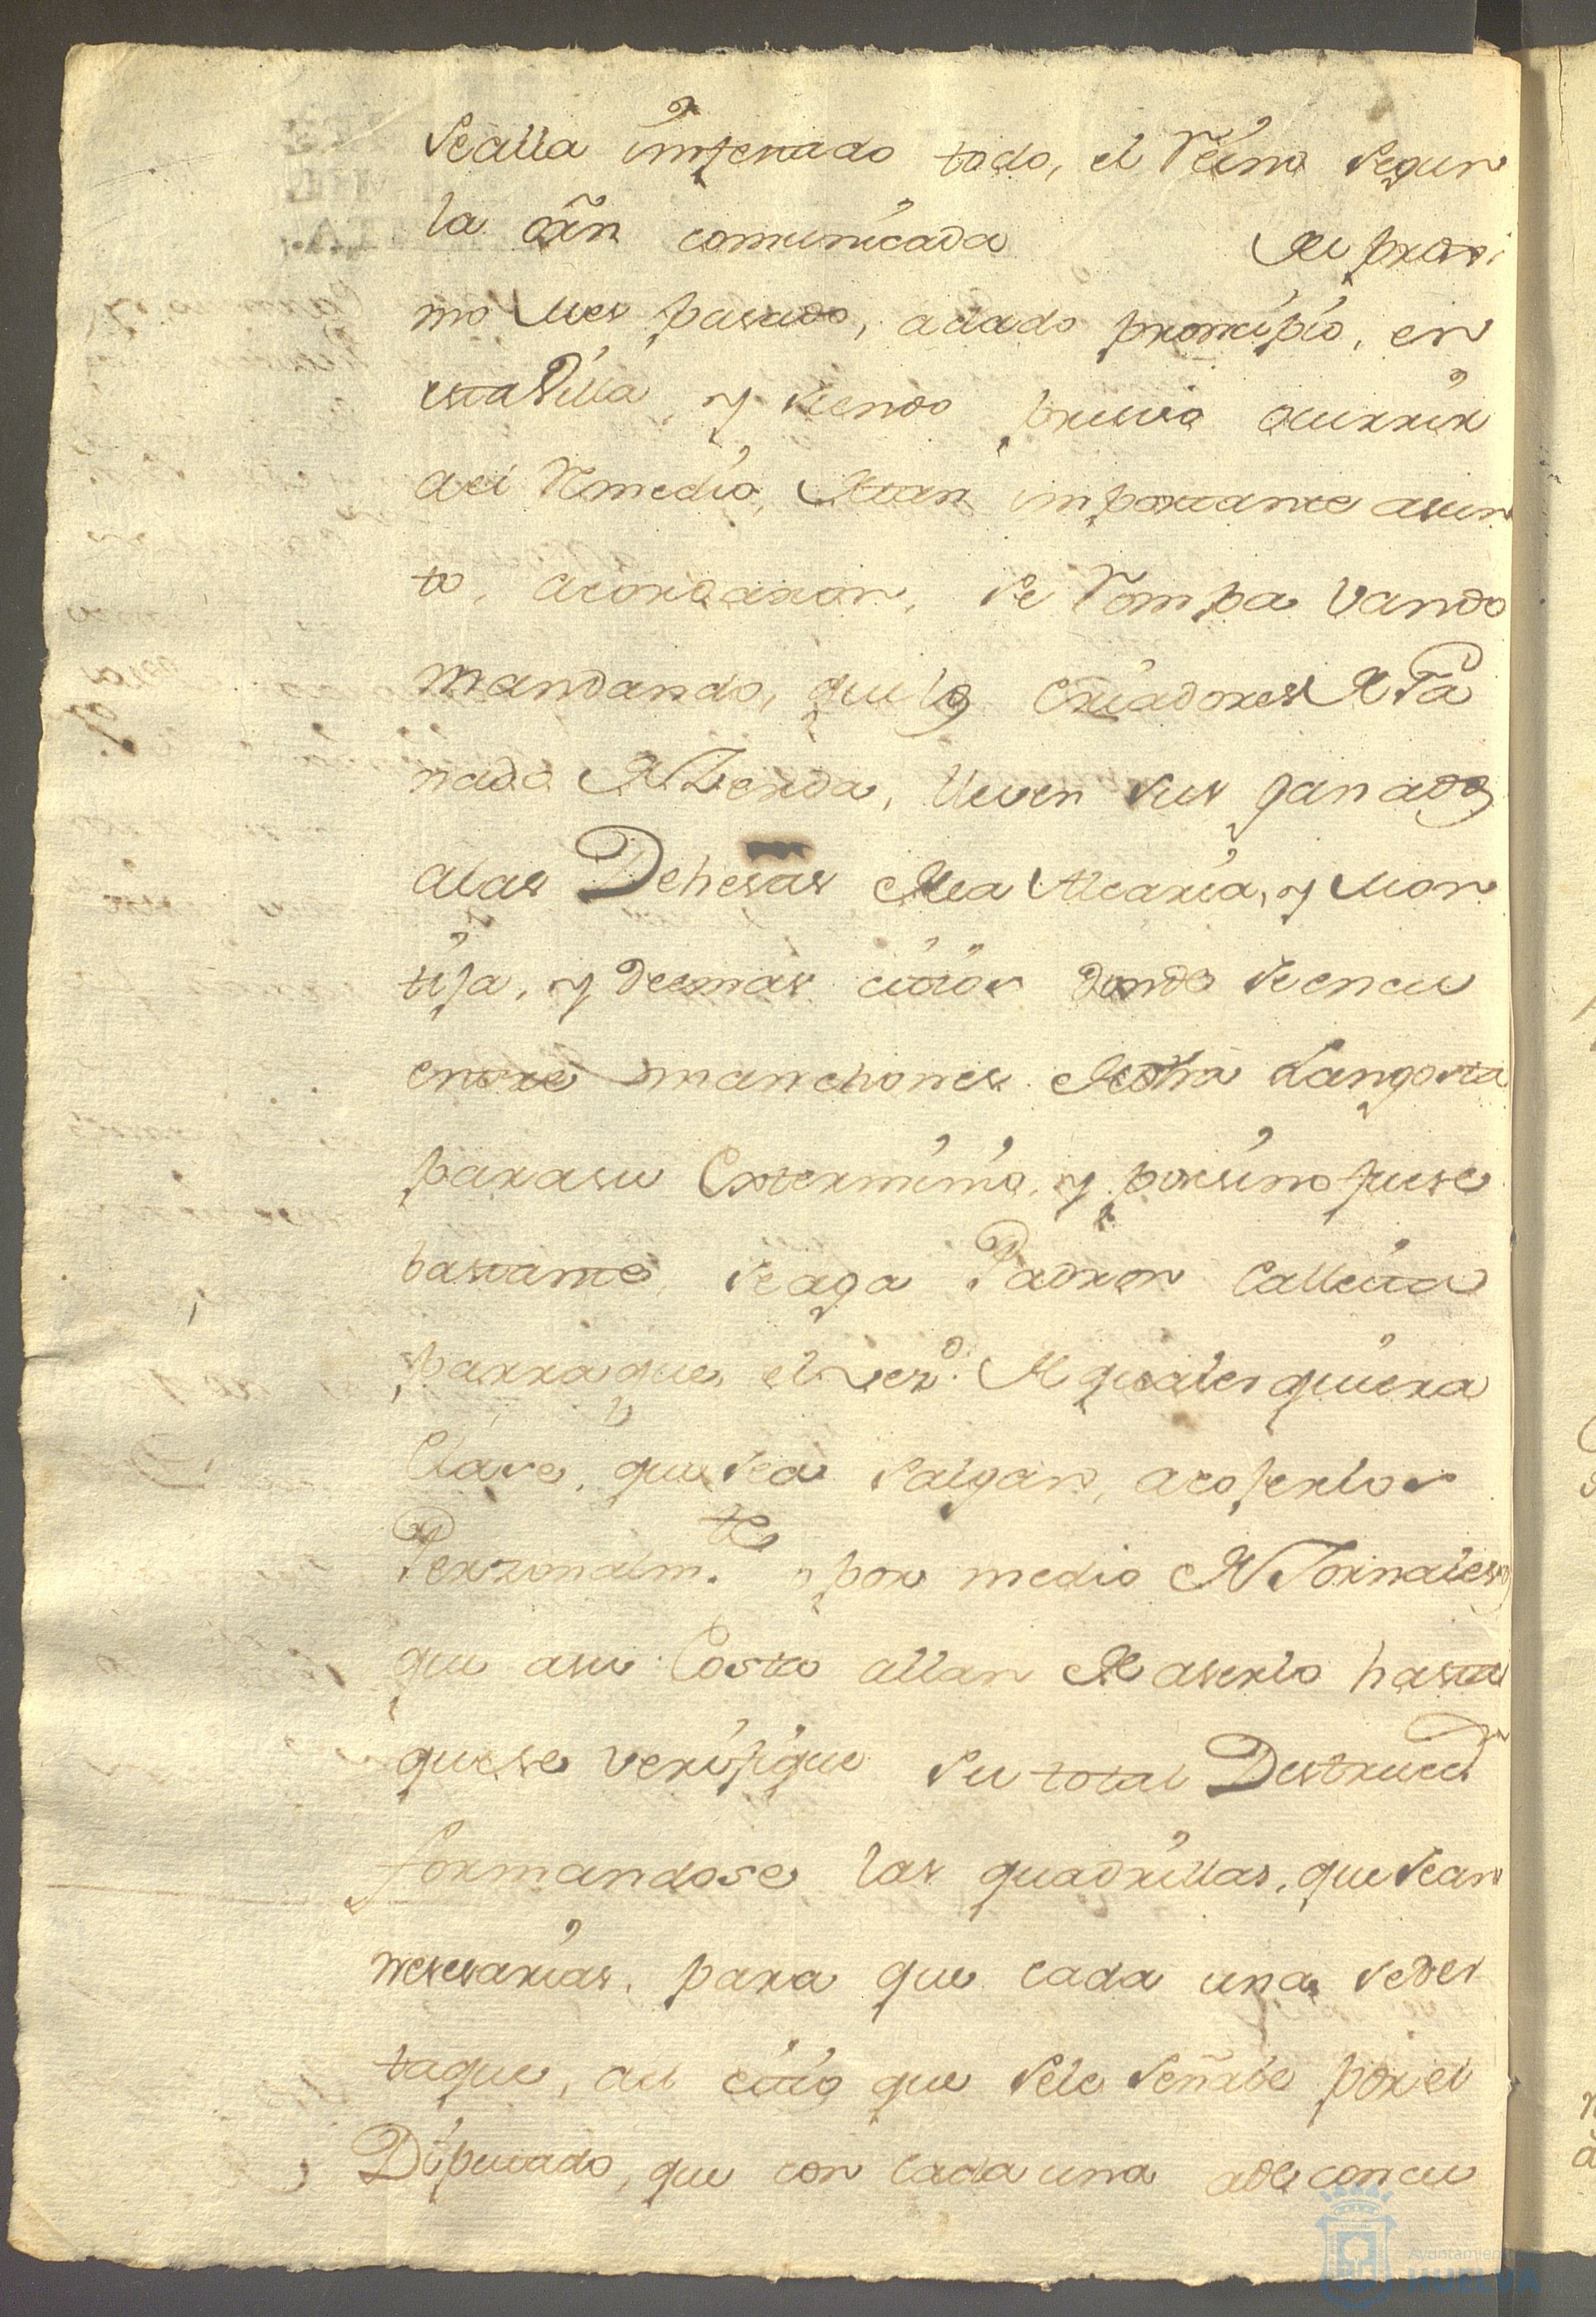 se alla imfestado todo, el Reino segun
la orñ comunicada del procsi
mo Mes pasado, adado principio, en
esta Villa, y siendo presiso ocurrir
ael Remedio, de tan importante asun
to, acordaron, se rompa vando
mandando, que los Criadores de Ga
nado de Zerda, lleven sus ganados
alas Dehesas de la Alcaria, y Mon
tija, y deemas citios donde se encu
entre manchones de otra Langosta
parasu Exterminio, y porsino fuese
bastante, se aga Padron Calleita
parra que, el vez.º de qualesquiera
Clase, que sea salgan, acojerlos
Perzonalm.te y por medio de Jornales,
que asu Costa allan de aserlo hasta
quese verifique su total Destrucc.n
formandose las quadrillas, que sean
nesesarias, para que cada una sedes
taque, ael citio que sele señale por el
Diputado, que con cada una ade concu
Ayuntamien
HUELVA